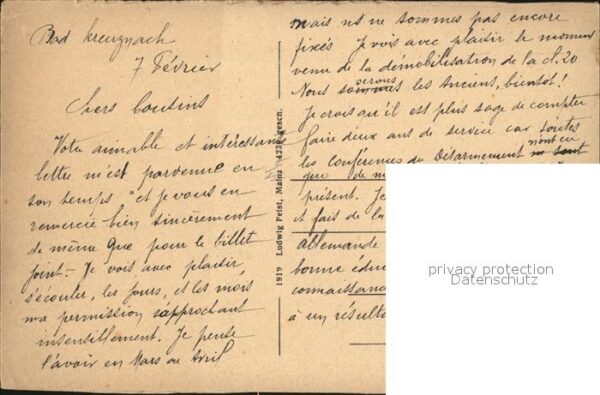 Bad Kreuznach
7 Février
Chers Cousins
Votre aimable et intéressante
lettre m'est parvenue en
son temps et je vous en
remercie bien sincèrement
de même que pour le billet
joint. - Je vois avec plaisir
s'écouler, les jours, et les mois
ma permission s'approchant
insensiblement. Je pense
l'avoir en Mars ou Avril
1919 Ludwig Feist, Mainz gesch.
mais ns ne sommes pas encore
fixés Je vois avec plaisir le moment
venu de la démobilisation de la cl. 20
Nous sommes serons les Anciens, bientôt!
Je crois qu'il est plus sage de compter
faire deux ans de service car toutes
les conférences du Désarmement n'ont eu
que de
présent. Je
et fais de la
allemande
bonne édu
connaissanc
à un résulta
privacy protection
Datenschutz